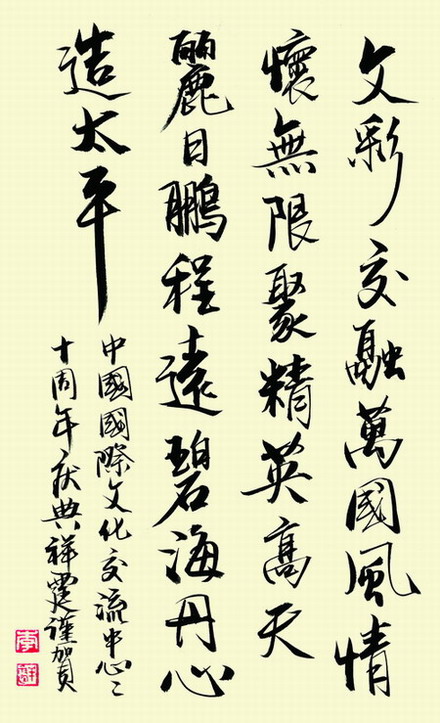 文彩交融萬國風情
懷無限聚精英高天
麗日鵬程遠碧海丹心
造太平
中國國際文化交流中心之
十周年庆典祥霆謹賀
李